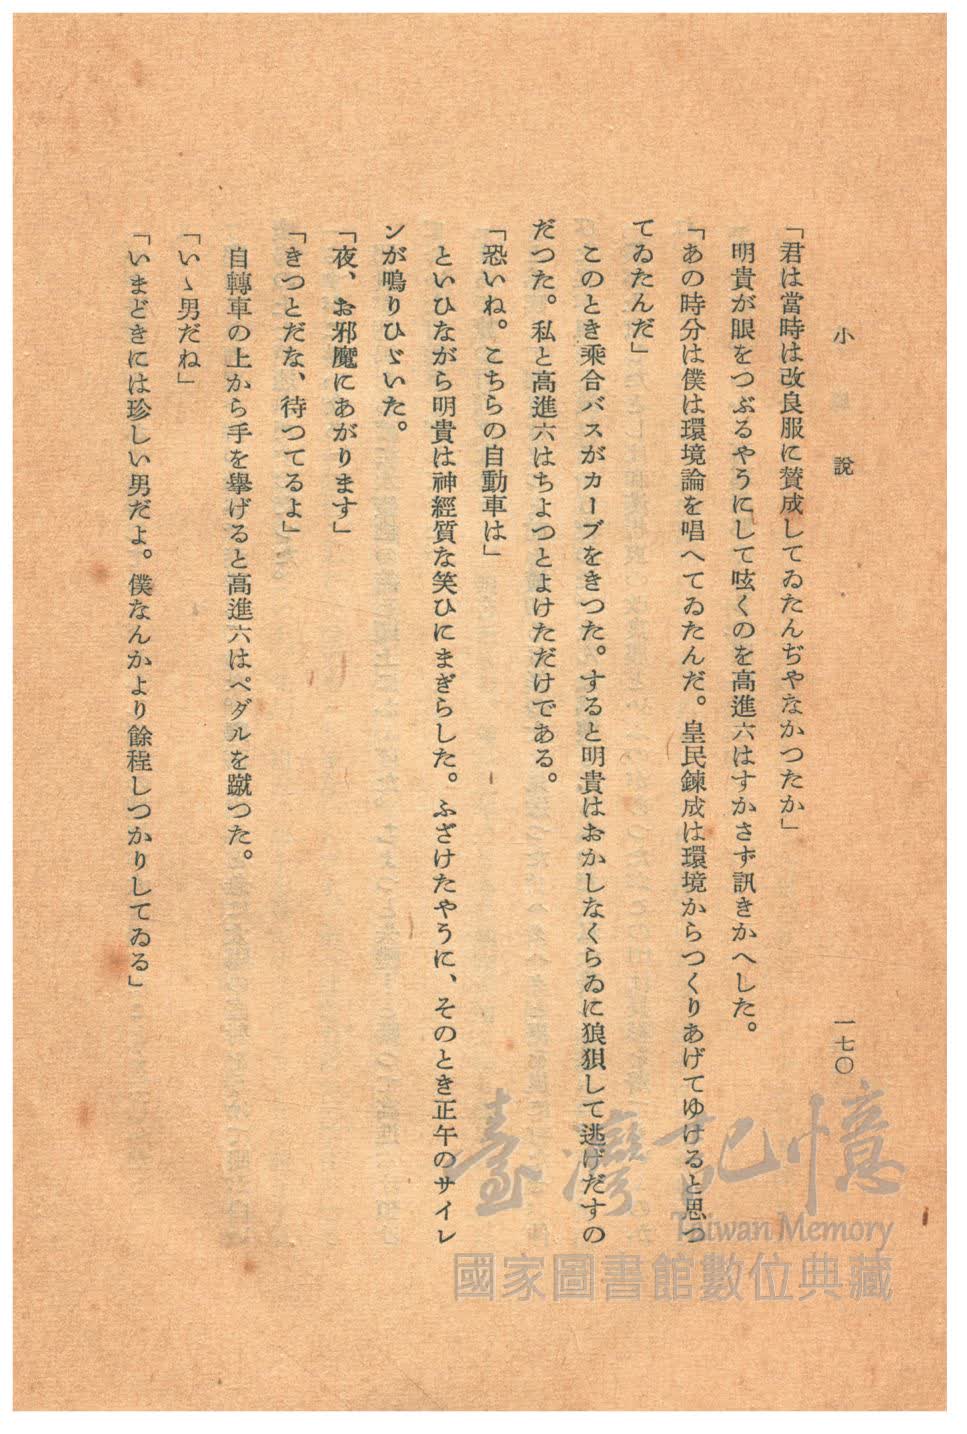 小說
一七〇
「君は當時は改良服に賛成してゐたんぢやなかつたか」
明貴が眼をつぶるやうにして呟くのを高進六はすかさず訊きかへした。
「あの時分は僕は環境論を唱へてゐたんだ。皇民鍊成は環境からつくりあげてゆけると思つ
てゐたんだ」
このとき乘合バスがカーブをきつた。すると明貴はおかしなくらゐに狼狽して逃げだすの
だつた。私と高進六はちよつとよけただけである。
「恐いね。こちらの自動車は」
といひながら明貴は神經質な笑ひにまぎらした。ふざけたやうに、そのとき正午のサイレ
ンが鳴りひゞいた。
「夜、お邪魔にあがります」
「きつとだな、待つてるよ」
自轉車の上から手を擧げると高進六はペダルを蹴つた。
「いゝ男だね」
「いまどきには珍しい男だよ。僕なんかより餘程しつかりしてゐる」
臺灣記憶
Taiwan Memory
國家圖書館數位典藏